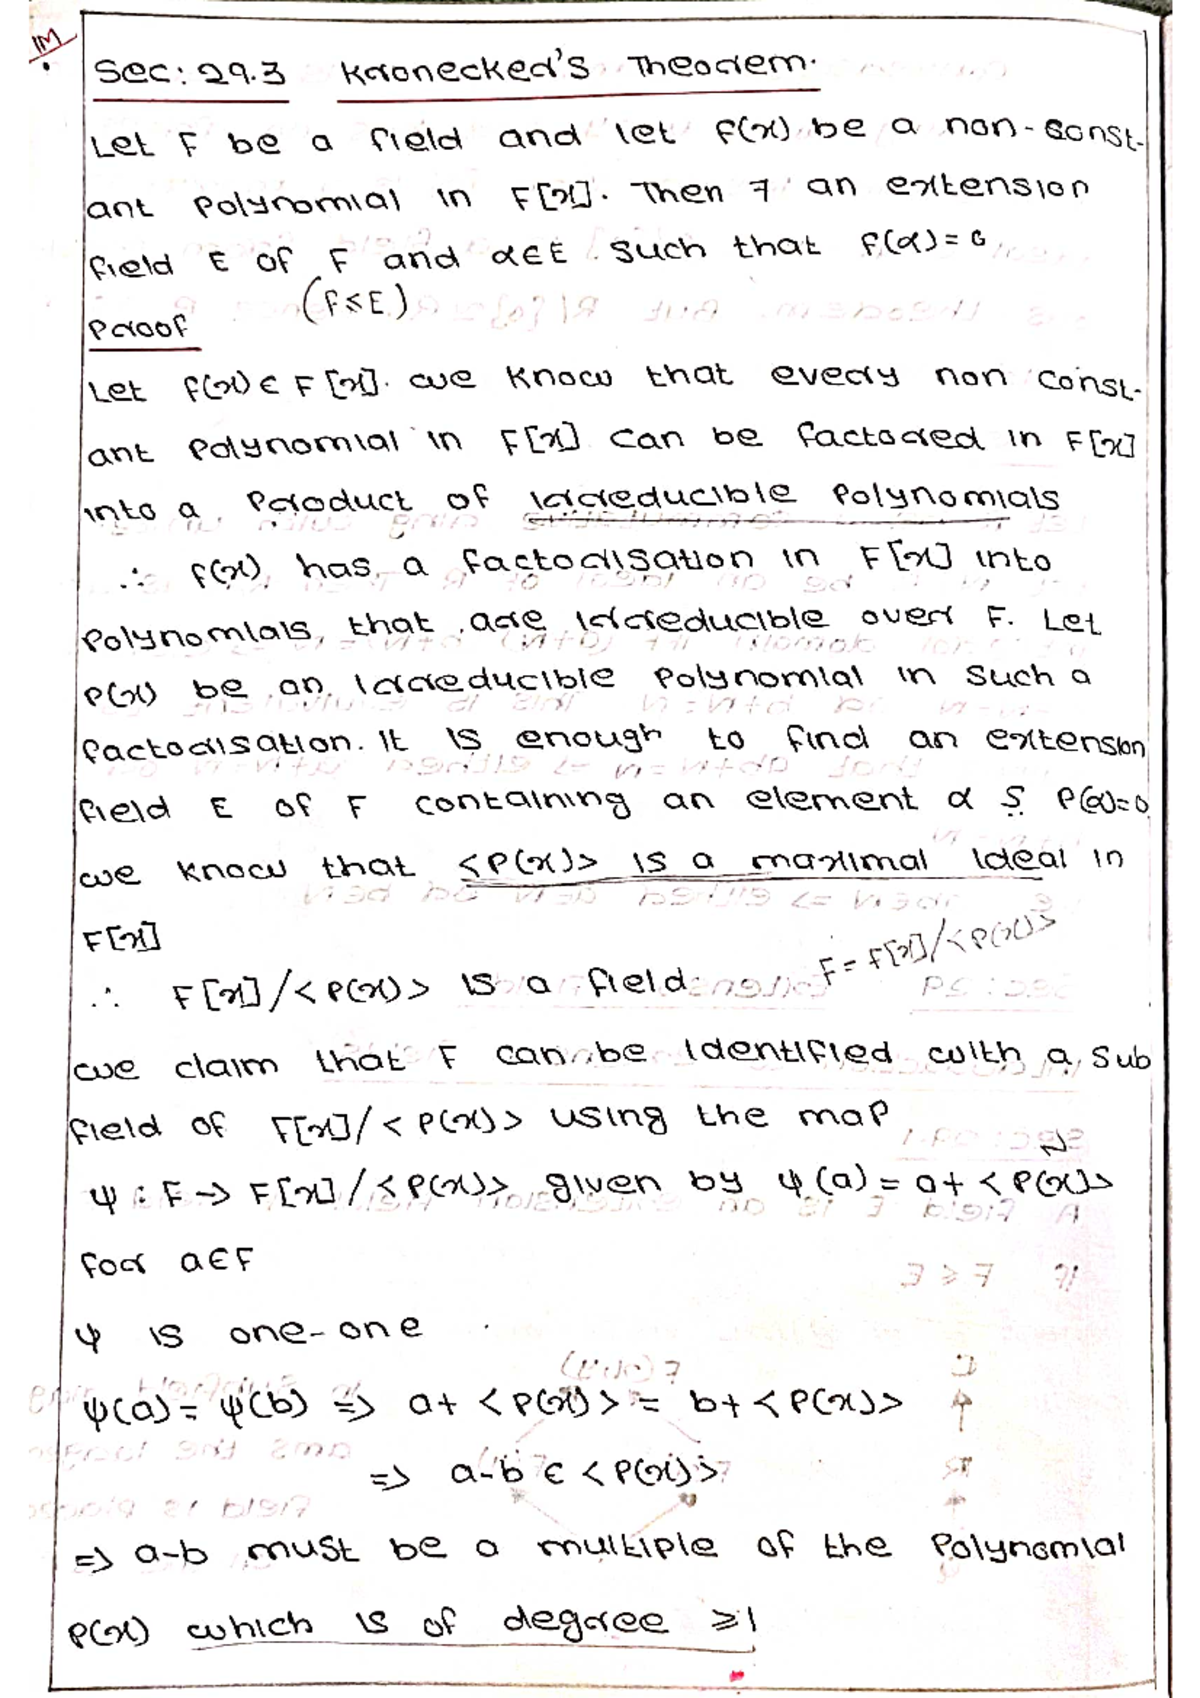 1M
Sec: 29.3 Kronecker's Theorem.
Let F be a field and let f(x) be a non-const-
ant polynomial in F[x]. Then ∃ an extension
field E of F and α∈E such that f(α)=0
(F≤E)
Proof
Let f(x)∈F[x]. we know that every non const-
ant polynomial in F[x] can be factored in F[x]
into a product of irreducible polynomials
∴ f(x) has a factorisation in F[x] into
polynomials, that are irreducible over F. Let
p(x) be an irreducible polynomial in such a
factorisation. It is enough to find an extension
field E of F containing an element α S P(α)=0
we know that <P(x)> is a maximal ideal in
F[x]
∴ F[x]/<P(x)> is a field
F = F[x]/<P(x)>
we claim that F can be identified with a sub
field of F[x]/<P(x)> using the map
ψ : F → F[x]/<P(x)> given by ψ(a) = a+ <P(x)>
for a∈F
ψ is one-one
ψ(a) = ψ(b) ⇒ a+ <P(x)> = b+ <P(x)>
⇒ a-b ∈ <P(x)>
⇒ a-b must be a multiple of the polynomial
P(x) which is of degree ≥1